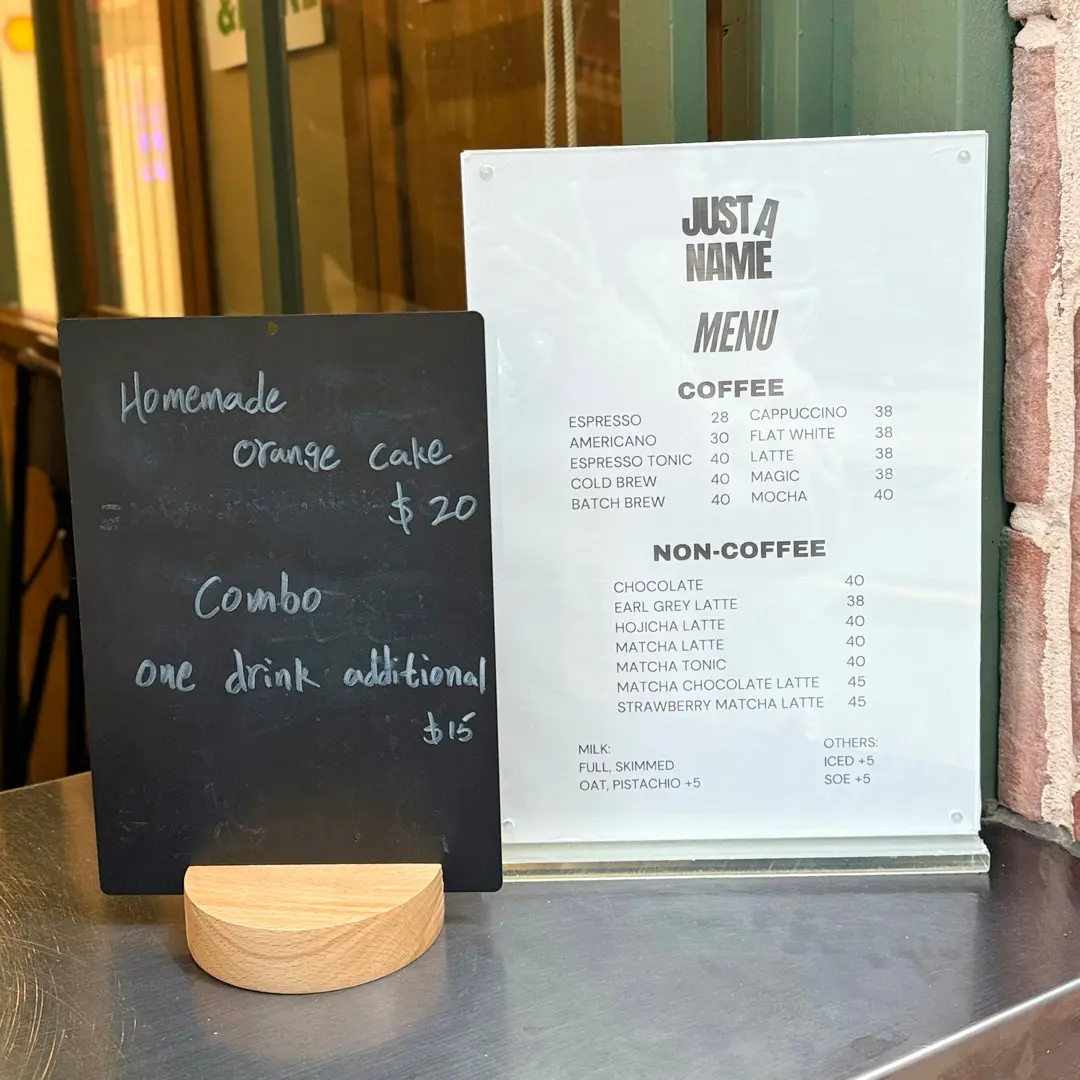 Homemade
orange cake
$20
Combo
one drink additional
$15
JUST A
NAME
MENU
COFFEE
ESPRESSO 28 CAPPUCCINO 38
AMERICANO 30 FLAT WHITE 38
ESPRESSO TONIC 40 LATTE 38
COLD BREW 40 MAGIC 38
BATCH BREW 40 MOCHA 40
NON-COFFEE
CHOCOLATE 40
EARL GREY LATTE 38
HOJICHA LATTE 40
MATCHA LATTE 40
MATCHA TONIC 40
MATCHA CHOCOLATE LATTE 45
STRAWBERRY MATCHA LATTE 45
MILK:
FULL, SKIMMED
OAT, PISTACHIO +5
OTHERS:
ICED +5
SOE +5